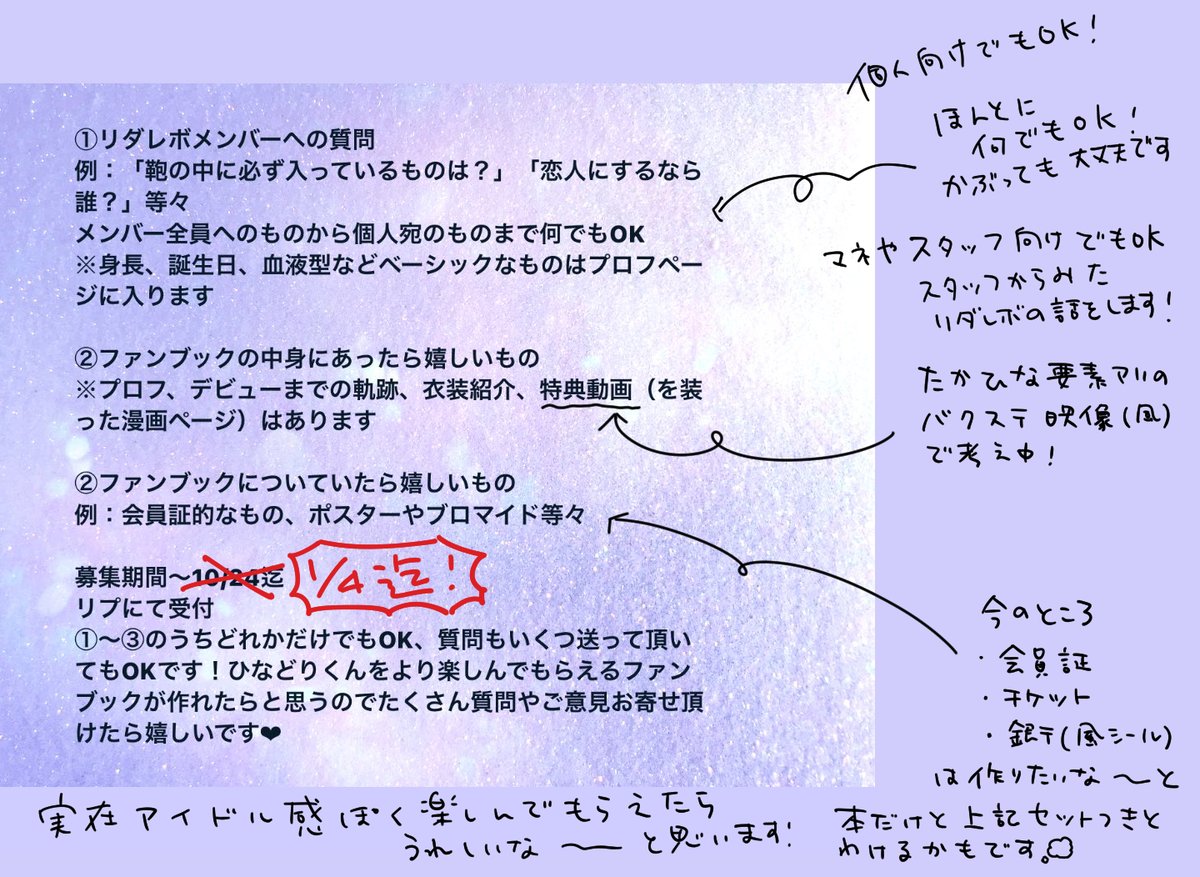 個人向けでもOK!
ほんとに
何でもOK!
かぶっても大丈夫です
①リダレボメンバーへの質問
例：「鞄の中に必ず入っているものは？」「恋人にするなら
誰？」等々
メンバー全員へのものから個人宛のものまで何でもOK
※身長、誕生日、血液型などベーシックなものはプロフペー
ジに入ります
マネやスタッフ向けでもOK
スタッフからみた
リダレボの話をします!
②ファンブックの中身にあったら嬉しいもの
※プロフ、デビューまでの軌跡、衣装紹介、特典動画（を装
った漫画ページ）はあります
たかひな要素アリの
バクステ映像(風)
で考え中!
②ファンブックについていたら嬉しいもの
例：会員証的なもの、ポスターやブロマイド等々
募集期間〜10/24迄
1/4迄!
リプにて受付
①〜③のうちどれかだけでもOK、質問もいくつ送って頂い
てもOKです！ひなどりくんをより楽しんでもらえるファン
ブックが作れたらと思うのでたくさん質問やご意見お寄せ頂
けたら嬉しいです❤
今のところ
・会員証
・チケット
・銀テ(風シール)
は作りたいな〜と
本だけと上記セットつきと
わけるかもです。
実在アイドル感ぽく楽しんでもらえたら
うれしいな〜と思います!